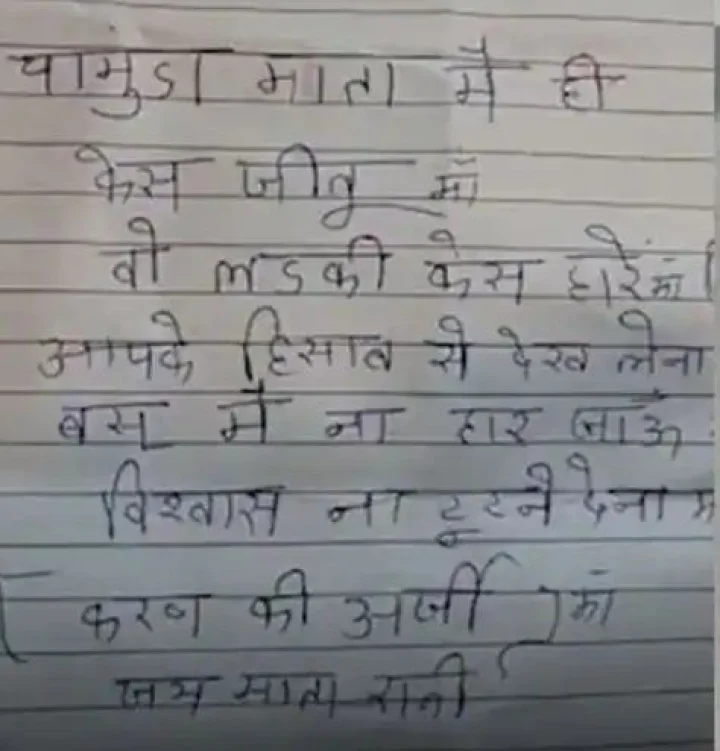 चामुंडा माता मै ही
केस जीतू माँ
वो लडकी केस हारे माँ
आपके हिसाब से देख लेना
बस मै ना हार जाऊँ
विश्वास ना टूटने देना म
( करण की अर्जी ) माँ
जय माता रानी